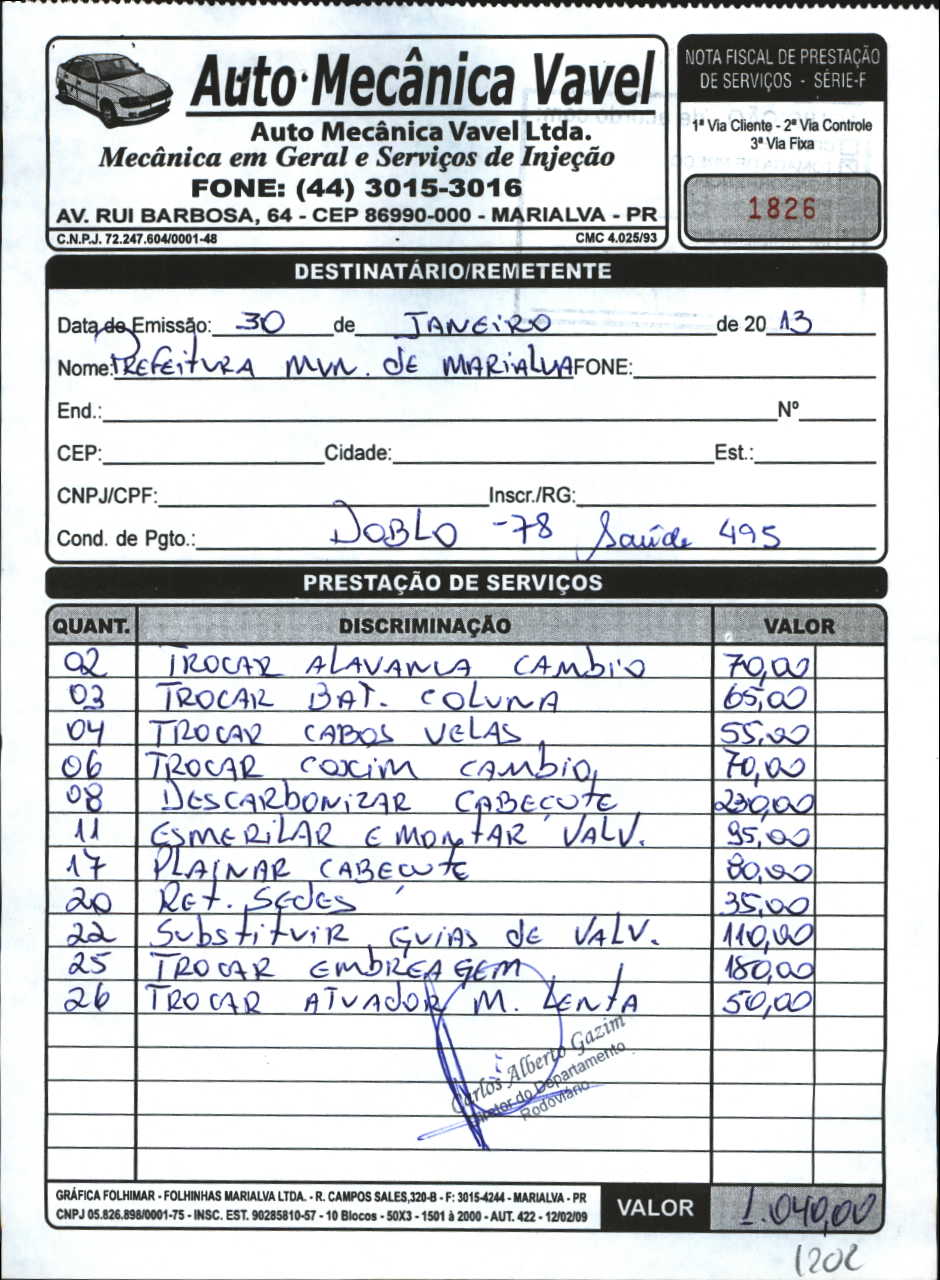 Auto Mecânica Vavel
Auto Mecânica Vavel Ltda.
Mecânica em Geral e Serviços de Injeção
FONE: (44) 3015-3016
AV. RUI BARBOSA, 64 - CEP 86990-000 - MARIALVA - PR
C.N.P.J. 72.247.604/0001-48 CMC 4.025/93
NOTA FISCAL DE PRESTAÇÃO
DE SERVIÇOS - SÉRIE-F
1ª Via Cliente - 2ª Via Controle
3ª Via Fixa
1826
DESTINATÁRIO/REMETENTE
Data de Emissão: 30 de JANEIRO de 20 13
Nome: PREFEITURA MUN. de MARIALVA FONE:
End.: Nº
CEP: Cidade: Est.:
CNPJ/CPF: Inscr./RG:
Cond. de Pgto.: DOBLO -78 Saúde 495
PRESTAÇÃO DE SERVIÇOS
QUANT. DISCRIMINAÇÃO VALOR
02 TROCAR ALAVANCA CAMBIO 70,00
03 TROCAR BAT. COLUNA 65,00
04 TROCAR CABOS VELAS 55,00
06 TROCAR COXIM CAMBIO 70,00
08 DESCARBONIZAR CABEÇOTE 230,00
11 ESMERILAR E MONTAR VALV. 95,00
17 PLAINAR CABEÇOTE 80,00
20 Ret. SEDES 35,00
22 Substituir GUIAS de VALV. 110,00
25 TROCAR EMBREAGEM 180,00
26 TROCAR ATUADOR M. LENTA 50,00
Carlos Alberto Gazim
Diretor do Departamento
Rodoviário
GRÁFICA FOLHIMAR - FOLHINHAS MARIALVA LTDA. - R. CAMPOS SALES,320-B - F: 3015-4244 - MARIALVA - PR
CNPJ 05.826.898/0001-75 - INSC. EST. 90285810-57 - 10 Blocos - 50X3 - 1501 à 2000 - AUT. 422 - 12/02/09
VALOR 1.040,00
1202